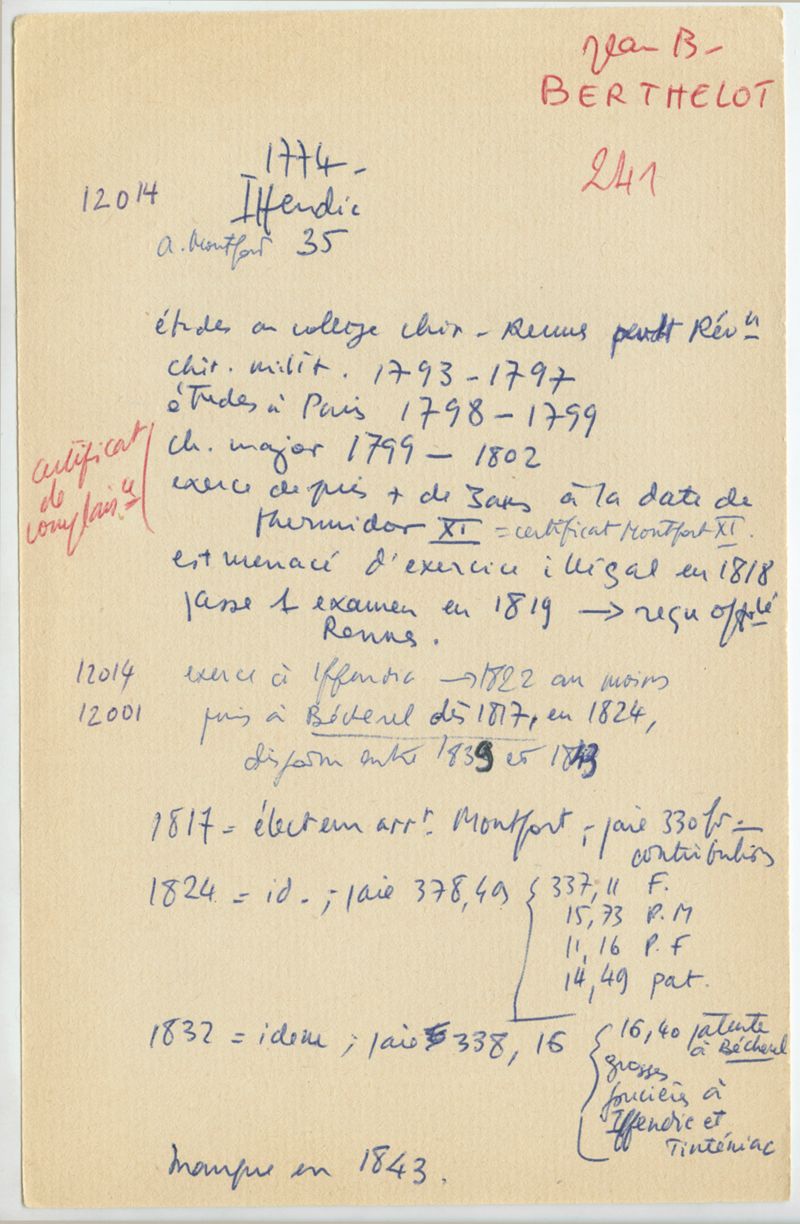 Jean B-
BERTHELOT
241
1774-
12014 Iffendic
a. Montfort 35
études au college chir - Rennes pendt Révn
chir. milit. 1793-1797
études à Paris 1798-1799
ch. major 1799 - 1802
exerce depuis + de 3 ans à la date de
thermidor XI = certificat Montfort XI.
certificat
de
complaisce
est menacé d'exercice illégal en 1818
passe 1 examen en 1819 → reçu
Rennes.
12014 exerce à Iffendic → 1822 au moins
12001 puis à Bécherel dès 1817, en 1824,
disparu entre 1839 et 1843
1817 = électeur arrt. Montfort ; paie 330 fr =
contributions
1824 = id. ; paie 378,49 { 337,11 F.
15,73 P.M
11,16 P.F
14,49 pat.
1832 = idem ; paie 338,16 { 16,40 patente
à Bécherel
grosses
foncières à
Iffendic et
Tinténiac
Manque en 1843.